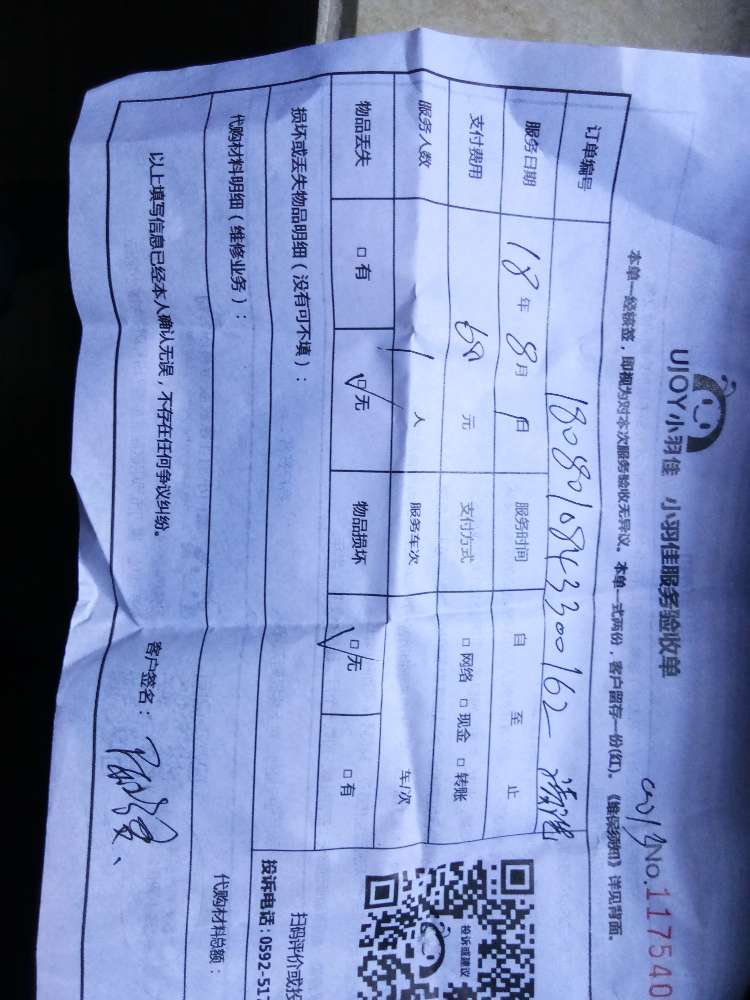 UJOY小羽佳 小羽佳服务验收单
No.117540
本单一经核签，即视为对本次服务验收无异议。本单一式两份，客户留存一份(红)。《维保须知》详见背面。
订单编号 1808010843300162
服务日期 18年8月1日 服务时间 自 至 止
支付费用 元 支付方式 □ 网络 □ 现金 □ 转账
服务人数 1 人 服务车次 车/次
物品丢失 □ 有 ☑ 无 物品损坏 ☑ 无 □ 有
损坏或丢失物品明细（没有可不填）：
代购材料明细（维修业务）： 代购材料总额：
以上填写信息已经本人确认无误，不存在任何争议纠纷。 客户签名：
投诉或建议
扫码评价或投
投诉电话：0592-517